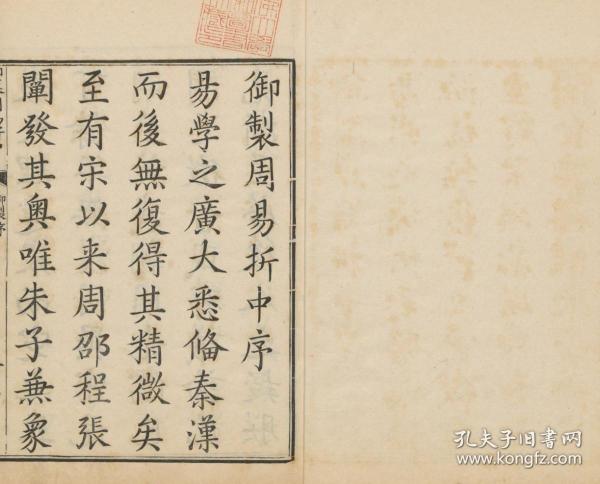 御製周易折中序
易學之廣大悉俻秦漢
而後無復得其精微矣
至有宋以来周邵程張
闡發其奥唯朱子蕪象
御製序
孔夫子旧书网
www.kongfz.com